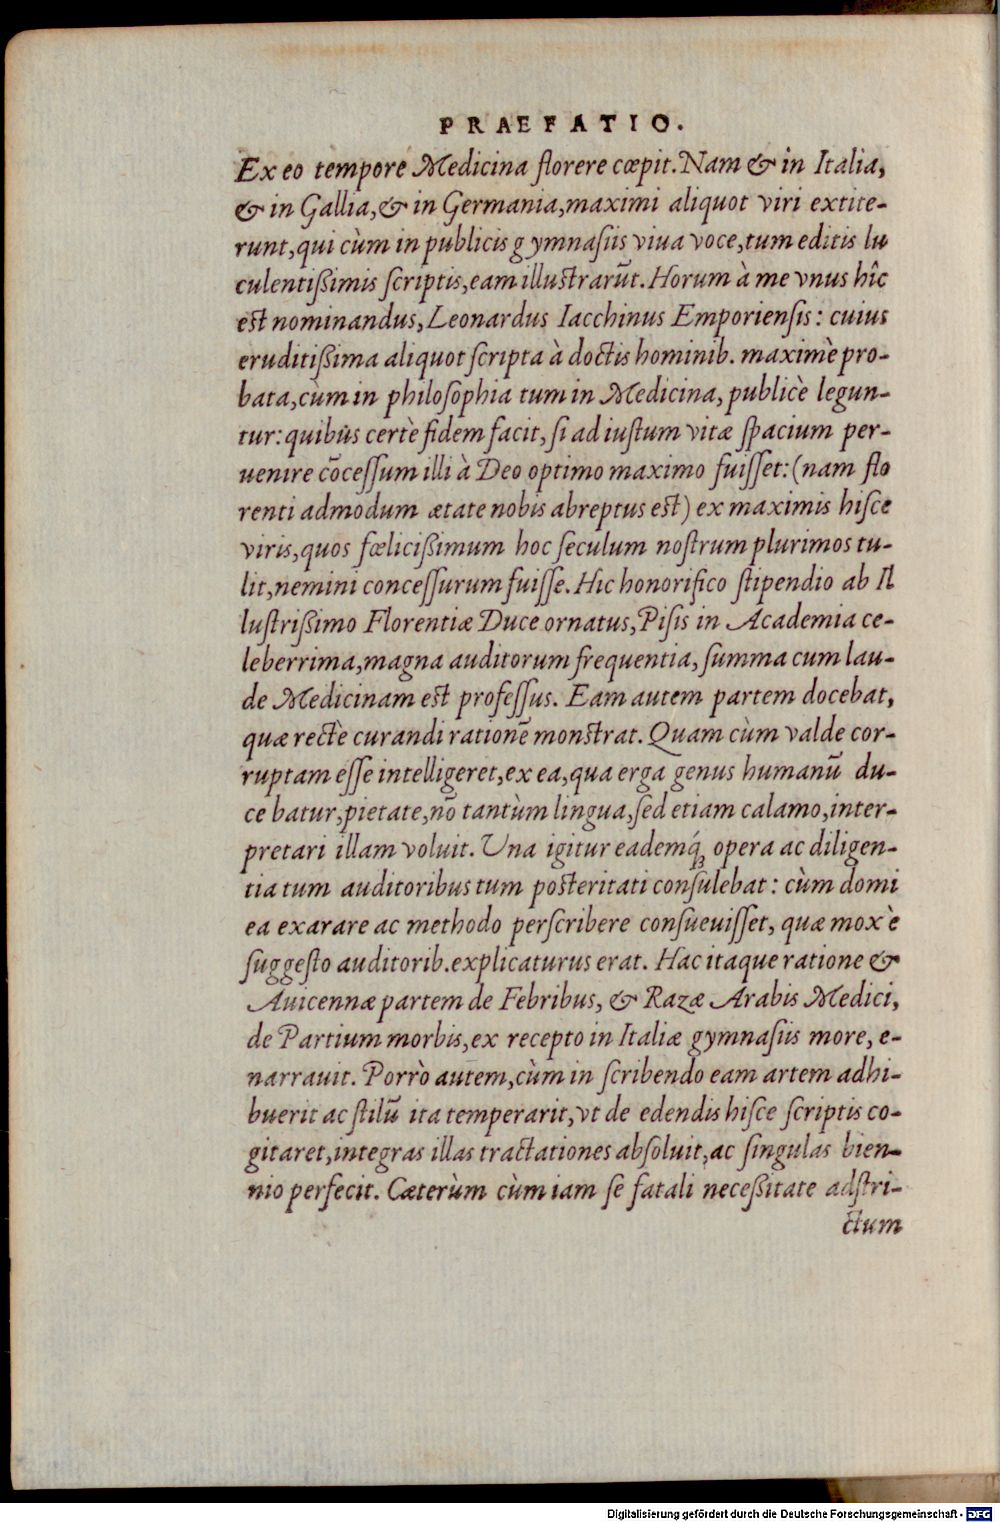 PRAEFATIO.
Ex eo tempore Medicina florere cœpit. Nam & in Italia,
& in Gallia, & in Germania, maximi aliquot viri extite-
runt, qui cùm in publicis gymnaſiis viua voce, tum editis lu
culentißimis ſcriptis, eam illuſtrarūt. Horum à me vnus hîc
eſt nominandus, Leonardus Iacchinus Emporienſis: cuius
eruditißima aliquot ſcripta à doctis hominib. maximè pro-
bata, cùm in philoſophia tum in Medicina, publicè legun-
tur: quibus certè fidem facit, ſi ad iuſtum vitæ ſpacium per-
uenire cōceſſum illi à Deo optimo maximo fuiſſet: (nam flo
renti admodum ætate nobis abreptus eſt) ex maximis hiſce
viris, quos fœlicißimum hoc ſeculum noſtrum plurimos tu-
lit, nemini conceſſurum fuiſſe. Hic honorifico ſtipendio ab Il
luſtrißimo Florentiæ Duce ornatus, Piſis in Academia ce-
leberrima, magna auditorum frequentia, ſumma cum lau-
de Medicinam eſt profeſſus. Eam autem partem docebat,
quæ rectè curandi rationē monſtrat. Quam cùm valde cor-
ruptam eſſe intelligeret, ex ea, qua erga genus humanū du-
cebatur, pietate, nō tantùm lingua, ſed etiam calamo, inter-
pretari illam voluit. Una igitur eademq́ꝫ opera ac diligen-
tia tum auditoribus tum poſteritati conſulebat: cùm domi
ea exarare ac methodo perſcribere conſueuiſſet, quæ mox è
ſuggeſto auditorib. explicaturus erat. Hac itaque ratione &
Auicennæ partem de Febribus, & Razæ Arabis Medici,
de Partium morbis, ex recepto in Italiæ gymnaſiis more, e-
narrauit. Porrò autem, cùm in ſcribendo eam artem adhi-
buerit ac ſtilū ita temperarit, vt de edendis hiſce ſcriptis co-
gitaret, integras illas tractationes abſoluit, ac ſingulas bien-
nio perfecit. Cæterùm cùm iam ſe fatali neceßitate adſtri-
ctum
Digitalisierung gefördert durch die Deutsche Forschungsgemeinschaft - DFG